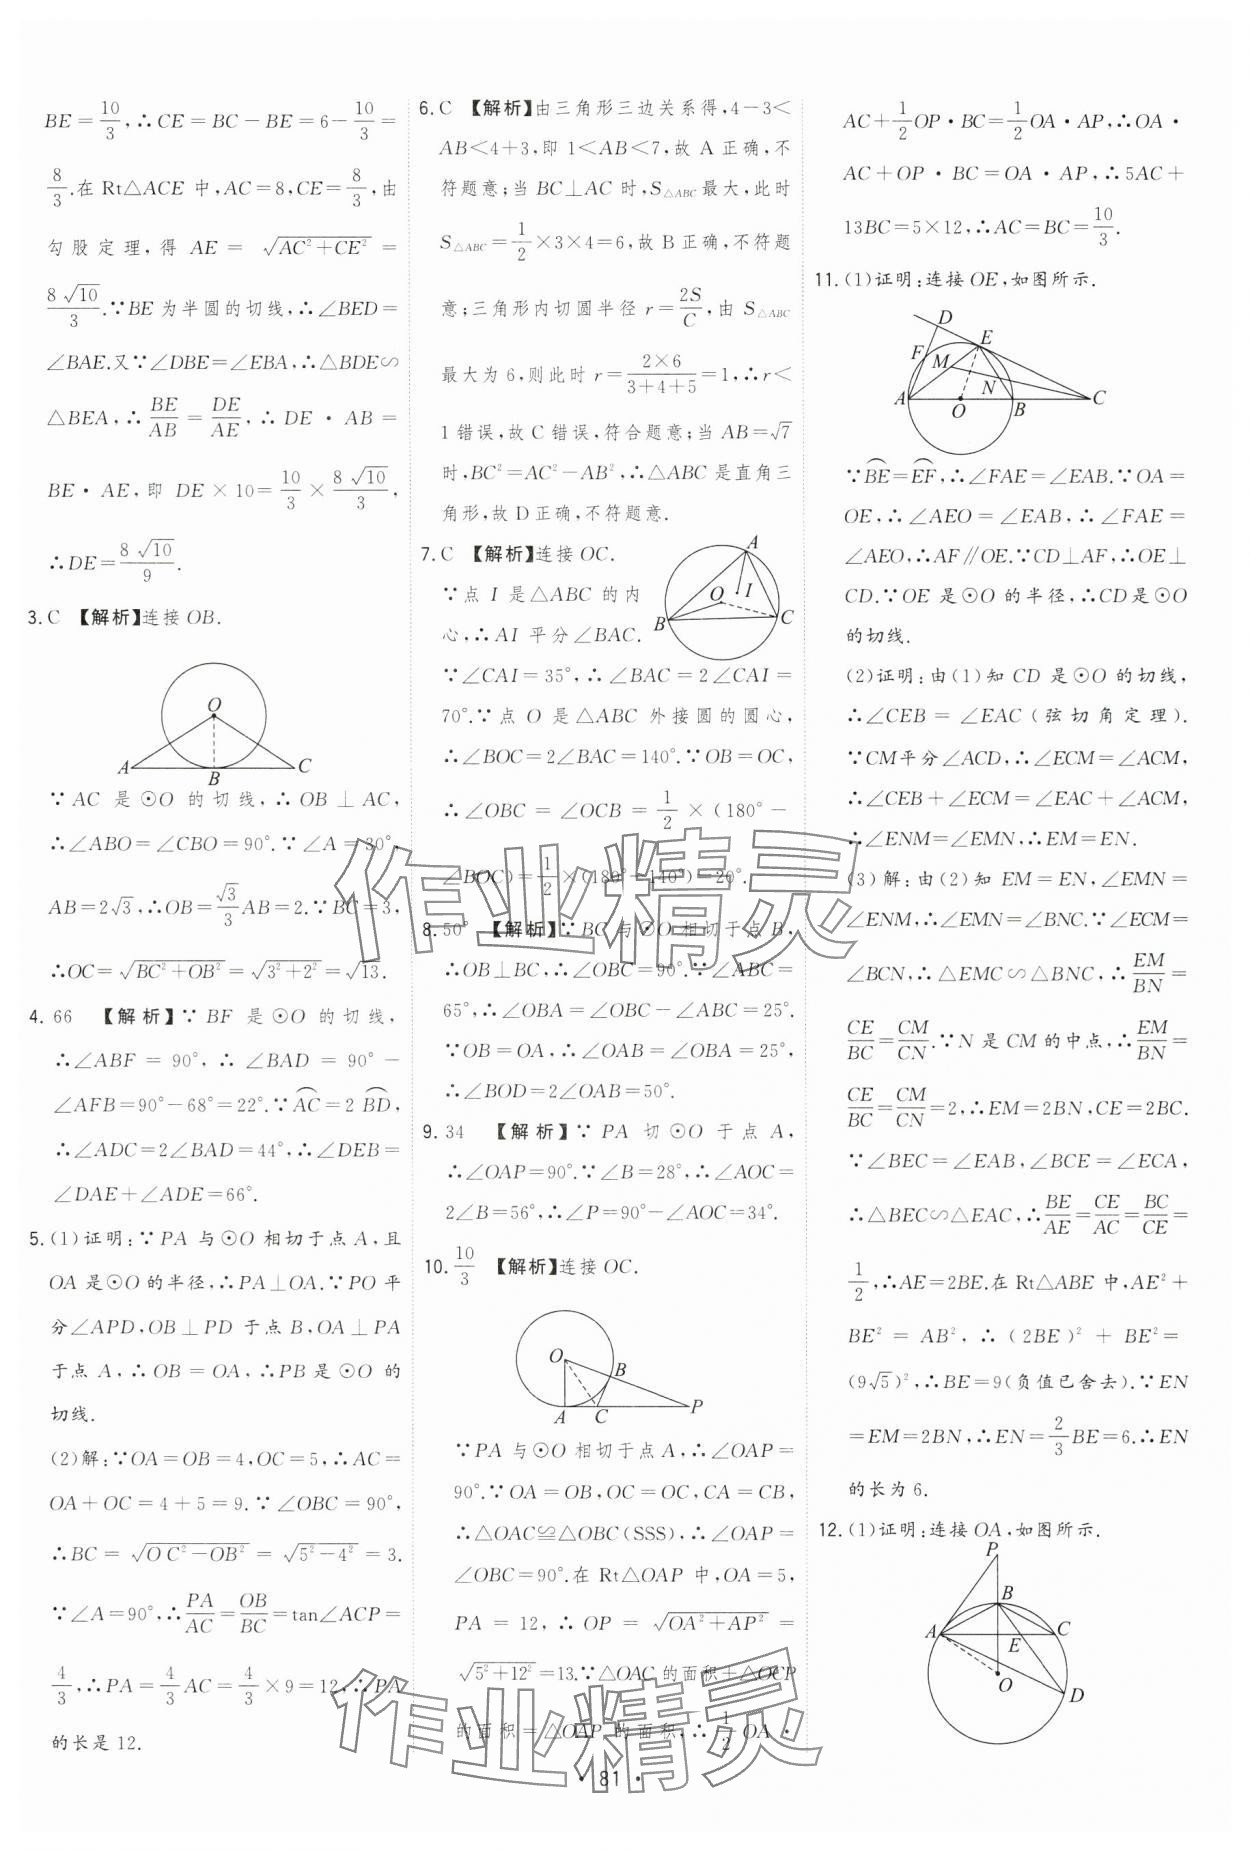 BE=10/3,∴CE=BC-BE=6-10/3=
8/3.在 Rt△ACE 中,AC=8,CE=8/3,由
勾股定理,得 AE=√(AC²+CE²)=
8√10/3.∵BE 为半圆的切线,∴∠BED=
∠BAE.又∵∠DBE=∠EBA,∴△BDE∽
△BEA,∴BE/AB=DE/AE,∴DE·AB=
BE·AE,即 DE×10=10/3×8√10/3,
∴DE=8√10/9.
3. C 【解析】连接 OB.
O
A B C
∵AC 是⊙O 的切线,∴OB⊥AC,
∴∠ABO=∠CBO=90°.∵∠A=30°,
AB=2√3,∴OB=√3/3AB=2.∵BC=3,
∴OC=√(BC²+OB²)=√(3²+2²)=√13.
4. 66 【解析】∵BF 是⊙O 的切线,
∴∠ABF=90°,∴∠BAD=90°-
∠AFB=90°-68°=22°.∵⌒AC=2⌒BD,
∴∠ADC=2∠BAD=44°,∴∠DEB=
∠DAE+∠ADE=66°.
5. (1)证明:∵PA 与⊙O 相切于点 A,且
OA 是⊙O 的半径,∴PA⊥OA.∵PO 平
分∠APD,OB⊥PD 于点 B,OA⊥PA
于点 A,∴OB=OA,∴PB 是⊙O 的
切线.
(2)解:∵OA=OB=4,OC=5,∴AC=
OA+OC=4+5=9.∵∠OBC=90°,
∴BC=√(OC²-OB²)=√(5²-4²)=3.
∵∠A=90°,∴PA/AC=OB/BC=tan∠ACP=
4/3,∴PA=4/3AC=4/3×9=12,∴PA
的长是 12.
6. C 【解析】由三角形三边关系得,4-3<
AB<4+3,即 1<AB<7,故 A 正确,不
符题意;当 BC⊥AC 时,S△ABC最大,此时
S△ABC=1/2×3×4=6,故 B 正确,不符题
意;三角形内切圆半径 r=2S/C,由 S△ABC
最大为 6,则此时 r=2×6/(3+4+5)=1,∴r<
1 错误,故 C 错误,符合题意;当 AB=√7
时,BC²=AC²-AB²,∴△ABC 是直角三
角形,故 D 正确,不符题意.
7. C 【解析】连接 OC.
A
O I
B C
∵点 I 是△ABC 的内
心,∴AI 平分∠BAC.
∵∠CAI=35°,∴∠BAC=2∠CAI=
70°.∵点 O 是△ABC 外接圆的圆心,
∴∠BOC=2∠BAC=140°.∵OB=OC,
∴∠OBC=∠OCB=1/2×(180°-
∠BOC)=1/2×(180°-140°)=20°.
8. 50° 【解析】∵BC 与⊙O 相切于点 B,
∴OB⊥BC,∴∠OBC=90°.∵∠ABC=
65°,∴∠OBA=∠OBC-∠ABC=25°.
∵OB=OA,∴∠OAB=∠OBA=25°,
∴∠BOD=2∠OAB=50°.
9. 34 【解析】∵PA 切⊙O 于点 A,
∴∠OAP=90°.∵∠B=28°,∴∠AOC=
2∠B=56°,∴∠P=90°-∠AOC=34°.
10. 10/3 【解析】连接 OC.
O B
A C P
∵PA 与⊙O 相切于点 A,∴∠OAP=
90°.∵OA=OB,OC=OC,CA=CB,
∴△OAC≌△OBC(SSS),∴∠OAP=
∠OBC=90°.在 Rt△OAP 中,OA=5,
PA=12,∴OP=√(OA²+AP²)=
√(5²+12²)=13.∵△OAC 的面积+△OCP
的面积=△OAP 的面积,∴1/2OA·
AC+1/2OP·BC=1/2OA·AP,∴OA·
AC+OP·BC=OA·AP,∴5AC+
13BC=5×12,∴AC=BC=10/3.
11. (1)证明:连接 OE,如图所示.
D E
F M
N
A O B C
∵⌒BE=⌒EF,∴∠FAE=∠EAB.∵OA=
OE,∴∠AEO=∠EAB,∴∠FAE=
∠AEO,∴AF∥OE.∵CD⊥AF,∴OE⊥
CD.∵OE 是⊙O 的半径,∴CD是⊙O
的切线.
(2)证明:由(1)知 CD 是⊙O 的切线,
∴∠CEB=∠EAC(弦切角定理).
∵CM平分∠ACD,∴∠ECM=∠ACM,
∴∠CEB+∠ECM=∠EAC+∠ACM,
∴∠ENM=∠EMN,∴EM=EN.
(3)解:由(2)知 EM=EN,∠EMN=
∠ENM,∴∠EMN=∠BNC.∵∠ECM=
∠BCN,∴△EMC∽△BNC,∴EM/BN=
CE/BC=CM/CN.∵N 是 CM 的中点,∴EM/BN=
CE/BC=CM/CN=2,∴EM=2BN,CE=2BC.
∵∠BEC=∠EAB,∠BCE=∠ECA,
∴△BEC∽△EAC,∴BE/AE=CE/AC=BC/CE=
1/2,∴AE=2BE.在 Rt△ABE 中,AE²+
BE²=AB²,∴(2BE)²+BE²=
(9√5)²,∴BE=9(负值已舍去).∵EN
=EM=2BN,∴EN=2/3BE=6.∴EN
的长为 6.
12. (1)证明:连接 OA,如图所示.
P
B
A E C
O
D
·81·
作业精灵
作业精灵